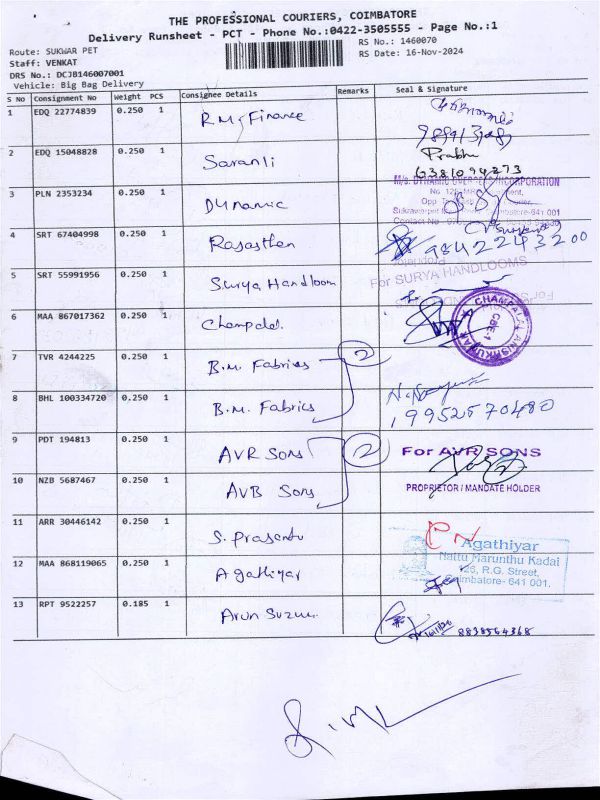 THE PROFESSIONAL COURIERS, COIMBATORE
Delivery Runsheet - PCT - Phone No.:0422-3505555 - Page No.:1
Route: SUKWAR PET
RS No.: 1460070
Staff: VENKAT
RS Date: 16-Nov-2024
DRS No.: DCJB146007001
Vehicle: Big Bag Delivery
S No Consignment No Weight PCS Consignee Details Remarks Seal & Signature
1 EDQ 22774839 0.250 1 R.M. Finance
2 EDQ 15048828 0.250 1 Saranli Prabhu
6381094273
3 PLN 2353234 0.250 1 Dynamic
4 SRT 67404998 0.250 1 Rajasthan 9842243200
5 SRT 55991956 0.250 1 Surya Handloom For SURYA HANDLOOMS
6 MAA 867017362 0.250 1 Champalal CHAMPALAL
CBE-1
7 TVR 4244225 0.250 1 B.M. Fabrics 2
8 BHL 100334720 0.250 1 B.M. Fabrics
19952570480
9 PDT 194813 0.250 1 AVR Sons 2 For AVR SONS
PROPRIETOR / MANDATE HOLDER
10 NZB 5687467 0.250 1 AVB Sons
11 ARR 30446142 0.250 1 S. Prasanth
Agathiyar
Nattu Marunthu Kadai
126, R.G. Street,
Coimbatore- 641 001.
12 MAA 868119065 0.250 1 Agathiyar
13 RPT 9522257 0.185 1 Arun Suzuu 8838564368